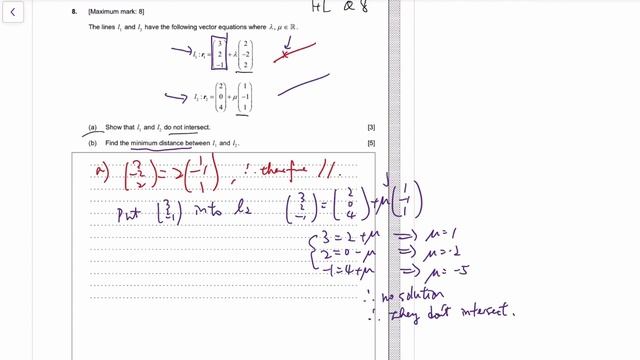 HL Q8
8. [Maximum mark: 8]
The lines l₁ and l₂ have the following vector equations where λ, μ ∈ ℝ.
l₁ : r₁ = (3 2 −1) + λ (2 −2 2)
l₂ : r₂ = (2 0 4) + μ (1 −1 1)
(a) Show that l₁ and l₂ do not intersect. [3]
(b) Find the minimum distance between l₁ and l₂. [5]
a) (3 −2 2) = 2 (1 −1 1), ∴ therefore //.
Put (3 2 −1) into l₂ (3 2 −1) = (2 0 4) + μ (1 −1 1)
3 = 2 + μ ⟹ μ = 1
2 = 0 − μ ⟹ μ = −2
−1 = 4 + μ ⟹ μ = −5
∴ no solution
∴ They don't intersect.